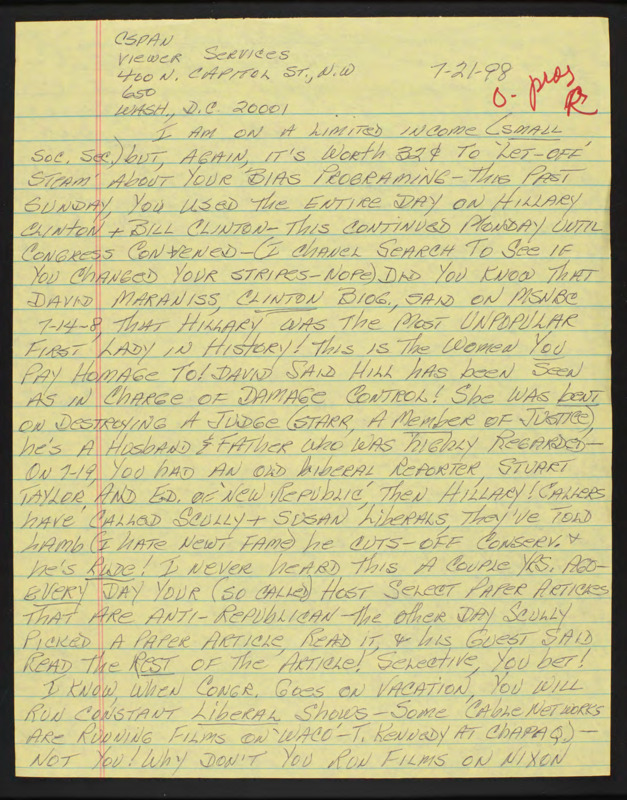 CSPAN
VIEWER SERVICES
400 N. CAPITOL ST., N.W
650
WASH., D.C. 20001
7-21-98
O- pros
I AM ON A LIMITED INCOME (SMALL
SOC. SEC.) BUT, AGAIN, IT'S WORTH 32¢ TO 'LET-OFF'
STEAM ABOUT YOUR BIAS PROGRAMING - THIS PAST
SUNDAY, YOU USED THE ENTIRE DAY ON HILLARY
CLINTON + BILL CLINTON - THIS CONTINUED MONDAY UNTIL
CONGRESS CONVENED - (I CHANEL SEARCH TO SEE IF
YOU CHANGED YOUR STRIPES - NOPE) DID YOU KNOW THAT
DAVID MARANISS, CLINTON BIOG., SAID ON MSNBC
7-14-8, THAT HILLARY WAS THE MOST UNPOPULAR
FIRST LADY IN HISTORY! THIS IS THE WOMEN YOU
PAY HOMAGE TO! DAVID SAID HILL HAS BEEN SEEN
AS IN CHARGE OF DAMAGE CONTROL! SHE WAS BENT
ON DESTROYING A JUDGE (STARR, A MEMBER OF JUSTICE),
HE'S A HUSBAND & FATHER WHO WAS HIGHLY REGARDED -
ON 7-19, YOU HAD AN OLD LIBERAL REPORTER, STUART
TAYLOR AND ED. OF 'NEW REPUBLIC', THEN HILLARY! CALLERS
HAVE CALLED SCULLY + SUSAN LIBERALS, THEY'VE TOLD
LAMB (I HATE NEWT FAME) HE CUTS-OFF CONSERV. &
HE'S RUDE! I NEVER HEARD THIS A COUPLE YRS. AGO -
EVERY DAY YOUR (SO CALLED) HOST SELECT PAPER ARTICLES
THAT ARE ANTI-REPUBLICAN - THE OTHER DAY SCULLY
PICKED A PAPER ARTICLE, READ IT, & HIS GUEST SAID
READ THE REST OF THE ARTICLE! SELECTIVE, YOU BET!
I KNOW, WHEN CONGR. GOES ON VACATION, YOU WILL
RUN CONSTANT LIBERAL SHOWS - SOME CABLE NETWORKS
ARE RUNNING FILMS ON 'WACO - T. KENNEDY AT CHAPAQ) -
NOT YOU! WHY DON'T YOU RUN FILMS ON NIXON